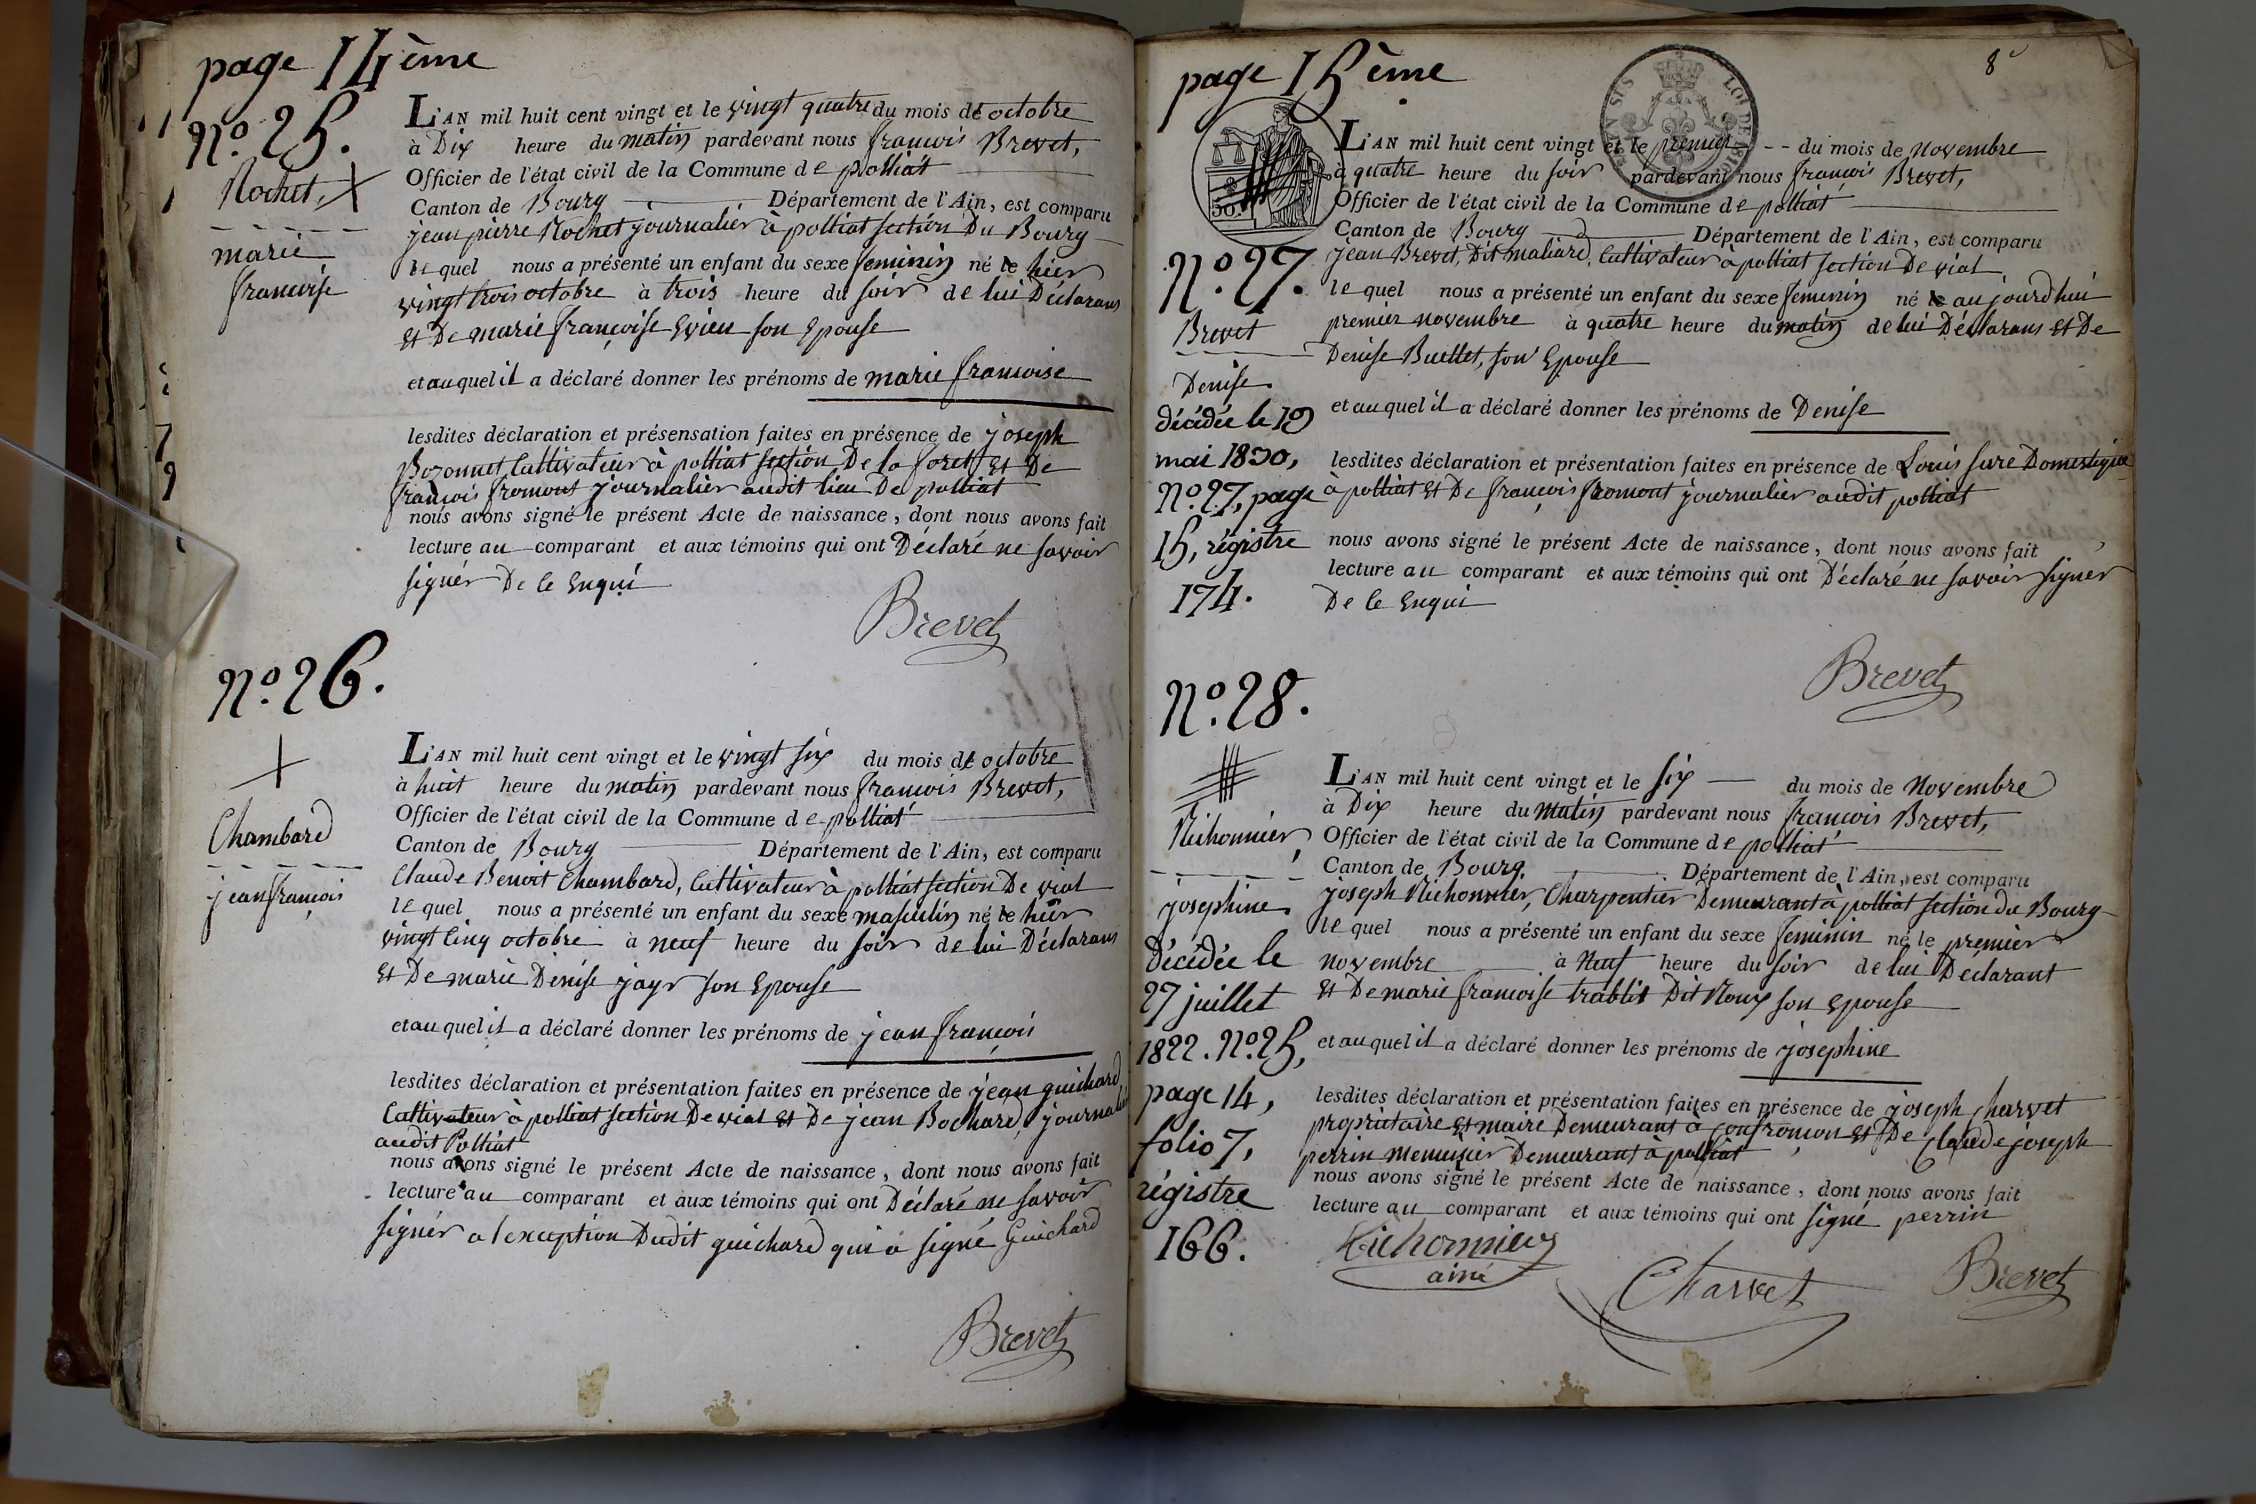 page 14ème
N.º 25.
Rochet,
marie
francoise
L'AN mil huit cent vingt et le vingt quatre du mois de octobre
à Dix heure du matin pardevant nous francois Brevet,
Officier de l'état civil de la Commune de polliat
Canton de Bourg Département de l'Ain, est comparu
jean pierre Rochet journalier à polliat section Du Bourg
lequel nous a présenté un enfant du sexe feminin né le hier
vingt trois octobre à trois heure du soir de lui Déclarans
et De marie françoise Evieu son Epouse
et auquel il a déclaré donner les prénoms de marie francoise
lesdites déclaration et présensation faites en présence de joseph
Bozonnet, Cultivateur à polliat section De la foret, et De
francois fromont journalier audit lieu De polliat
nous avons signé le présent Acte de naissance, dont nous avons fait
lecture au comparant et aux témoins qui ont Déclaré ne savoir
signer De ce Enqui
Brevet
N.º 26.
Chambard
jean françois
L'AN mil huit cent vingt et le vingt six du mois de octobre
à huit heure du matin pardevant nous francois Brevet,
Officier de l'état civil de la Commune de polliat
Canton de Bourg Département de l'Ain, est comparu
Claude Benoit Chambard, Cultivateur à polliat section De vial
lequel nous a présenté un enfant du sexe masculin né le hier
vingt Cinq octobre à neuf heure du soir de lui Déclarans
et De marie Denise jayr son Epouse
et auquel il a déclaré donner les prénoms de jean françois
lesdites déclaration et présentation faites en présence de jean guichard
Cultivateur à polliat section De vial et De jean Bochard, journalier
audit Polliat
nous avons signé le présent Acte de naissance, dont nous avons fait
lecture au comparant et aux témoins qui ont Déclaré ne savoir
signér a l'exception Dudit guichard qui a signé Guichard
Brevet
page 15ème
8
50.
LOI DE 1816
N.º 27.
Brevet
Denise
décédée le 19
mai 1830,
N.º 27, page
15, régistre
174.
L'AN mil huit cent vingt et le premier du mois de novembre
à quatre heure du soir pardevant nous françois Brevet,
Officier de l'état civil de la Commune de polliat
Canton de Bourg Département de l'Ain, est comparu
jean Brevet, Dit maliard, Cultivateur à polliat section De vial
lequel nous a présenté un enfant du sexe feminin né le aujourd'hui
premier novembre à quatre heure du matin de lui Déclarans et De
Denise Buellet, son Epouse
et auquel il a déclaré donner les prénoms de Denise
lesdites déclaration et présentation faites en présence de Louis sure Domestique
à polliat et De françois fromont journalier audit polliat
nous avons signé le présent Acte de naissance, dont nous avons fait
lecture au comparant et aux témoins qui ont Déclaré ne savoir signer
De ce Enqui
Brevet
N.º 28.
Richonnier,
josephine
décédée le
27 juillet
1822. N.º 25,
page 14,
folio 7,
régistre
166.
L'AN mil huit cent vingt et le six du mois de novembre
à Dix heure du matin pardevant nous françois Brevet,
Officier de l'état civil de la Commune de polliat
Canton de Bourg, Département de l'Ain, est comparu
joseph Richonnier, Charpentier Demeurant à polliat section du Bourg
lequel nous a présenté un enfant du sexe feminin né le premier
novembre à Neuf heure du soir de lui Déclarant
et De marie francoise trablit Dit Roux son epouse
et auquel il a déclaré donner les prénoms de josephine
lesdites déclaration et présentation faites en présence de joseph charvet
propriétaire et maire Demeurant à confrançon et De Claude joseph
perrin menuisier Demeurant à polliat
nous avons signé le présent Acte de naissance, dont nous avons fait
lecture au comparant et aux témoins qui ont signé perrin
Richonnier
ainé
Charvet
Brevet